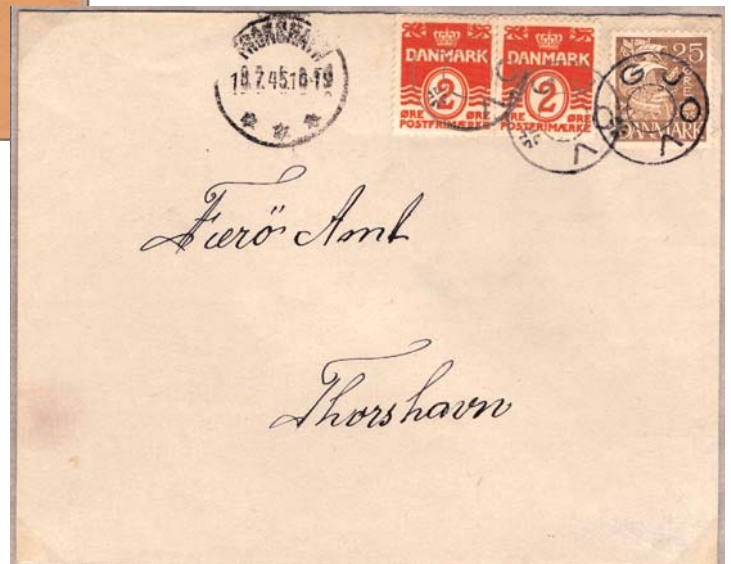 THORSHAVN
18.2.45.18-19
DANMARK
2
ØRE ØRE
POSTFRIMÆRKE
DANMARK
2
ØRE ØRE
POSTFRIMÆRKE
25
DANMARK
GJOV
Færö Amt
Thorshavn